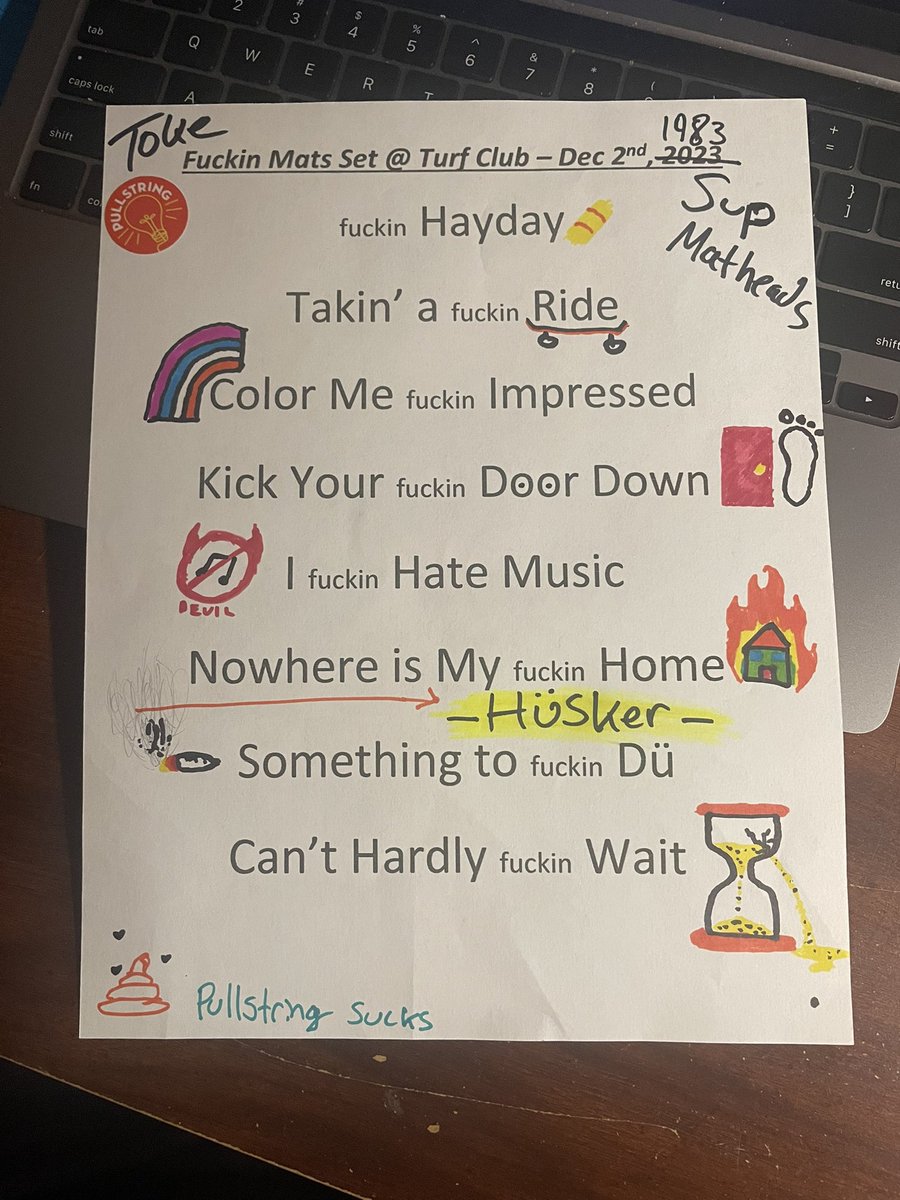 tab
caps lock
shift
fn
Q
W
E
R
T
A
2
#
3
$
4
%
5
^
6
&
7
*
8
(
+
=
}
]
shift
1983
Fuckin Mats Set @ Turf Club – Dec 2nd, 2023
PULLSTRING
Sup
Matheads
fuckin Hayday
Takin' a fuckin Ride
Color Me fuckin Impressed
Kick Your fuckin Door Down
I fuckin Hate Music
DEVIL
Nowhere is My fuckin Home
-HÜSker-
Something to fuckin Dü
Can't Hardly fuckin Wait
Pullstring Sucks